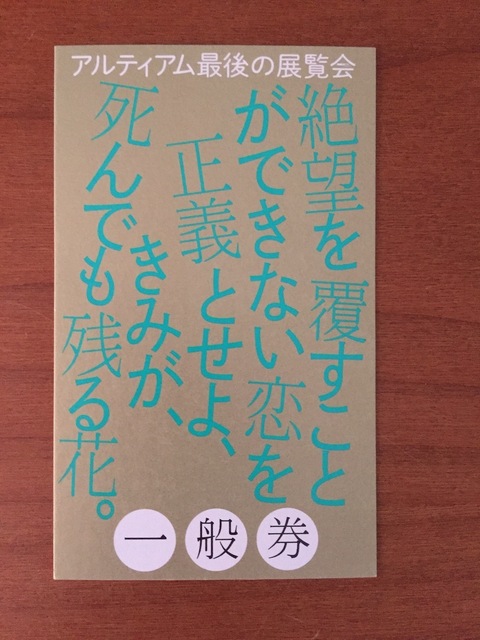 アルティアム最後の展覧会
絶望を覆すこと
ができない恋を
正義とせよ、
きみが、
死んでも残る花。
一般券